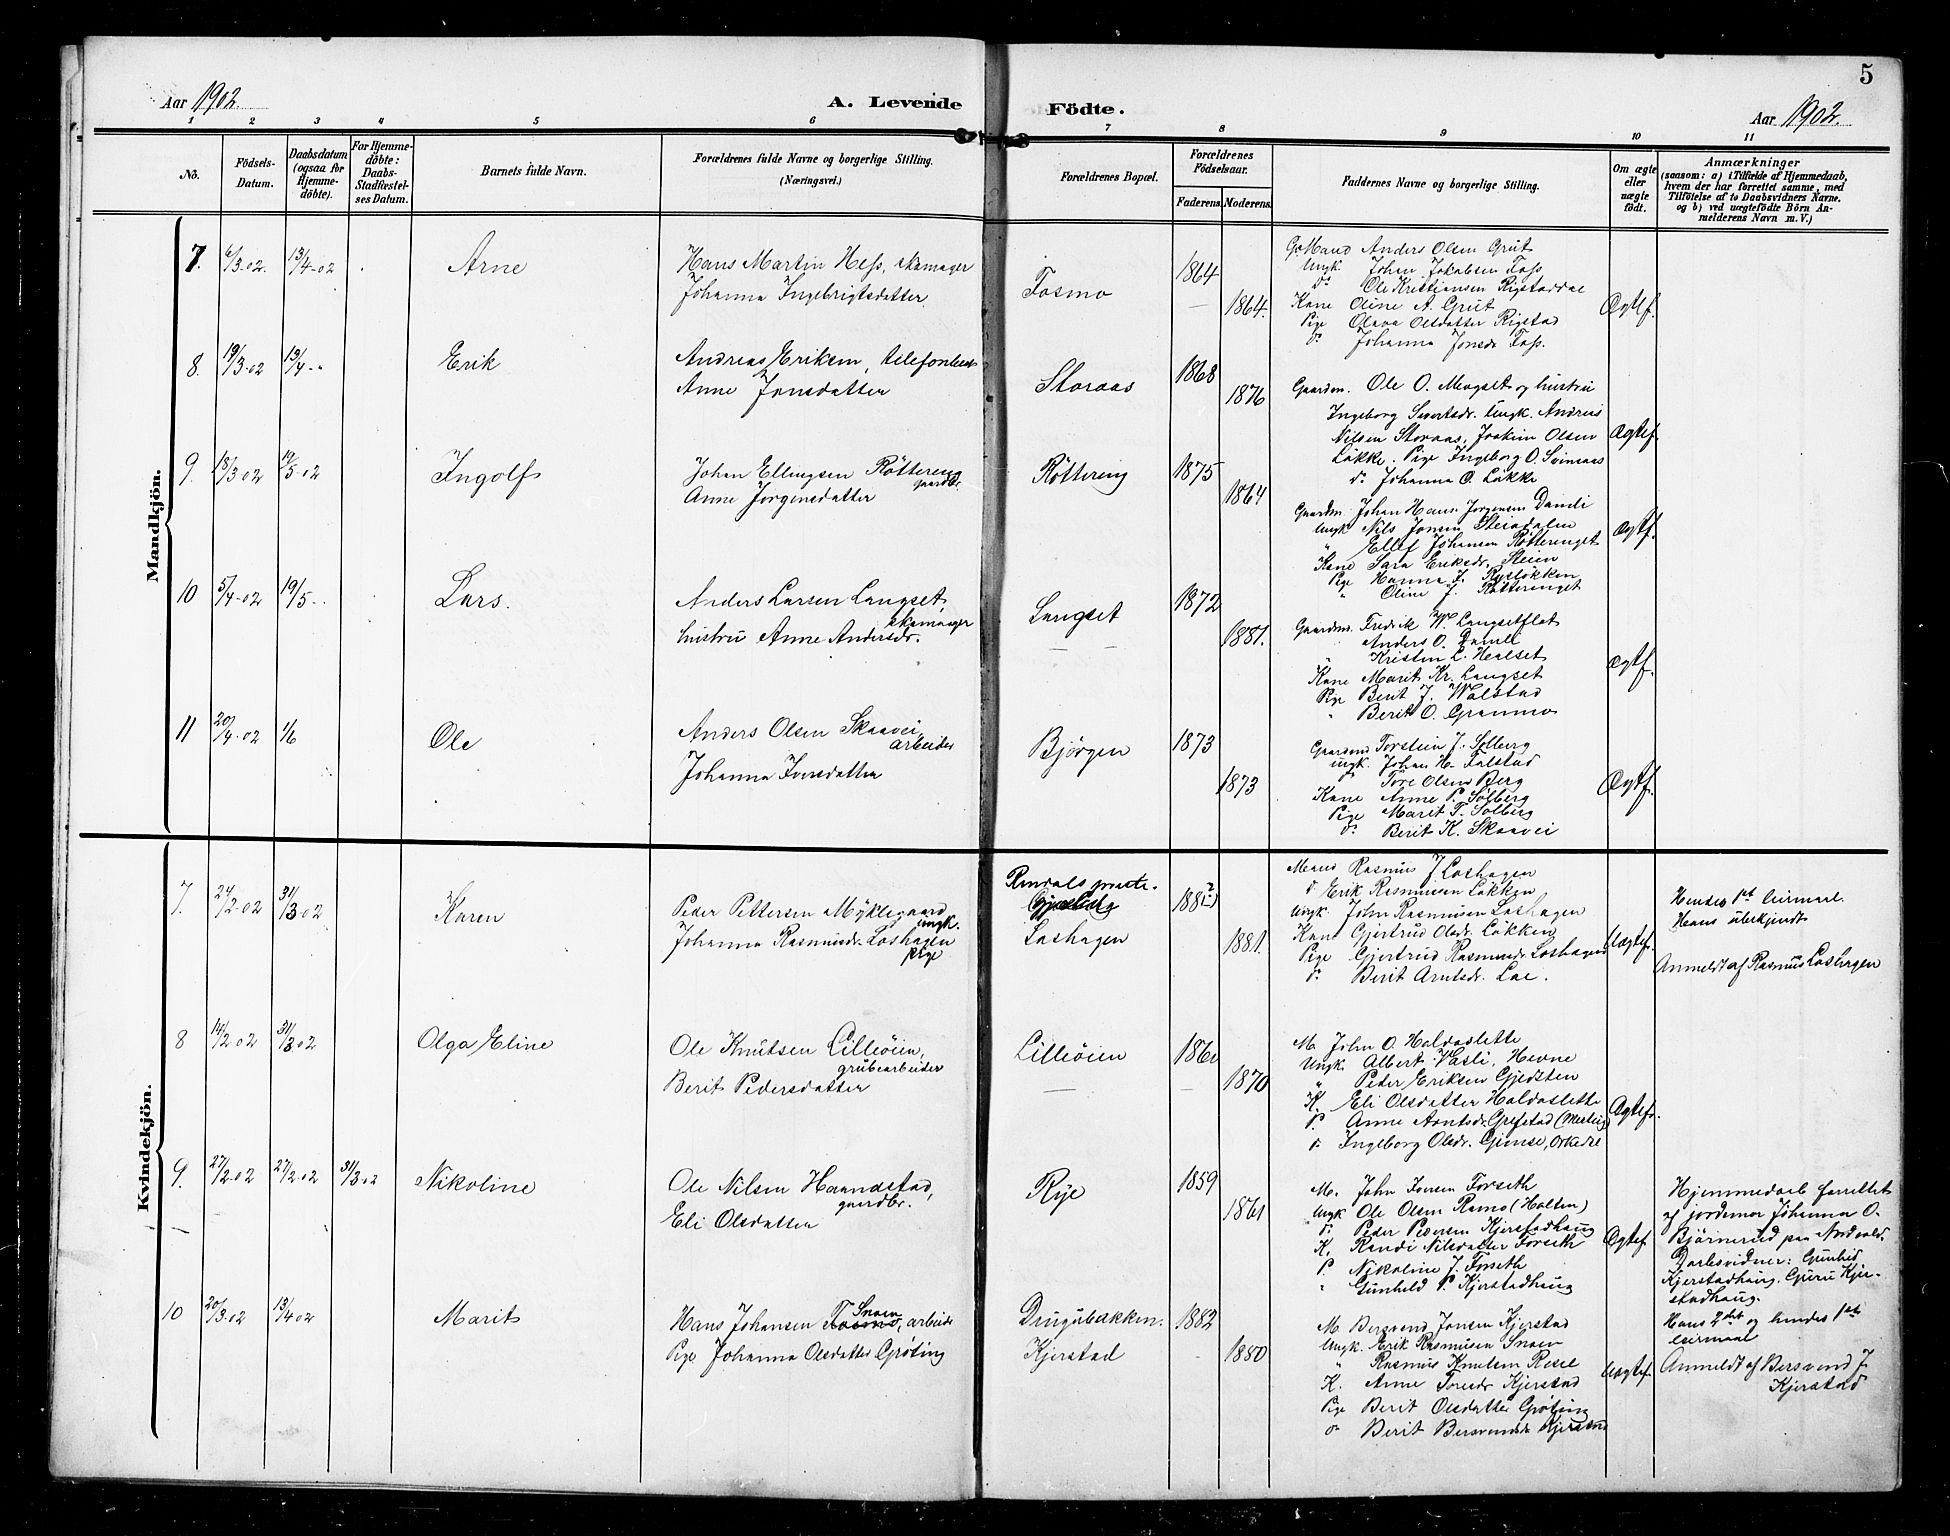 5
Aar 1902.
A. Levende Födte.
Aar 1902.
1 2 3 4 5 6 7 8 9 10 11
No.
Födsels-Datum.
Daabsdatum (ogsaa for Hjemmedöbte).
For Hjemmedöbte: Daabs-Stadfæstelses Datum.
Barnets fulde Navn.
Forældrenes fulde Navne og borgerlige Stilling.
(Næringsvei.)
Forældrenes Bopæl.
Forældrenes Födselsaar.
Faderens. Moderens.
Faddernes Navne og borgerlige Stilling.
Om ægte eller uægte födt.
Anmærkninger
(saasom: a) i Tilfælde af Hjemmedaab, hvem der har forrettet samme, med Tilföielse af to Daabsvidners Navne, og b) ved uægtefödte Börn Anmelderens Navn m. V.)
Mandkjön.
7. 6/3.02. 13/4-02 Arne
Hans Martin Hess, skomager
Johanna Ingebrigtsdatter
Fosmo
1864
1864.
G.Mand Anders Olsen Grut
Ungk. Johan Jakobsen Foss
do Ole Kristiansen Rigstaddal
Kone Oline A. Grut
Pige Olava Olsdatter Rigstad
do Johanna Jonsdr Foss.
Ægtef.
8. 19/3.02 13/4-" Erik
Andreas Eriksen,
Anne Jonsdatter
Storaas
1868
1876
Gaardm. Ole O. Mogset og hustru
Ingeborg Sivertsdr. Ungk. Andreas
Nilsen Storaas, Joakim Olsen
Løkke. Pige Ingeborg O. Svinsaas
do Johanna O. Løkke
Ægtef.
9. 18/3 02 19/5-02 Ingolf
Johan Ellingsen Røttereng
gaardbr.
Anne Jørgensdatter
Røttereng
1875
1864
Gaardm. Johan Hans Jørgensen Damli
Ungk Nils Jonsen Steindalen
" Ellef Johansen Røtterenget
Kone Sara Eriksdr. Steien
Pige Hanna J. Rysløkken
" Oline J. Røtterenget
Ægtf.
10 5/4-02 19/5-" Lars.
Anders Larsen Langset,
skomager
hustru Anne Andersdr.
Langset
1872
1881.
Gaardm. Fredrik W. Langsetflot
Anders O. Damli
" Kristen L. Healset
Kone Marit Kr. Langset
Pige Berit J. Wolstad
" Berit O. Granmo
ægtf.
11 20/4-02 1/6 Ole
Anders Olsen Skaavei,
arbeider
Johanna Iversdatter
Bjørgen
1873
1873
Gaardmd Torstein J. Solberg
ungk. Johan H. Falstad
" Tore Olsen Berg
Kone Anne P. Solberg
Pige Marit T. Solberg
do Berit K. Skaavei
Ægtf.
Kvindekjön.
7. 24/2-02 31/3 02 Karen
Peder Pettersen Myklegaard
ungk.
Johanna Rasmusdr. Loshagen
pige
Rindals præste-
Loshagen
188
1881.
Mand Rasmus J. Loshagen
do Erik Rasmussen Løkken
Ungk. John Rasmussen Loshagen
Kone Gjertrud Olsdr. Løkken
Pige Gjertrud Rasmusdr Loshagen
do Berit Arntsdr. Loe.
Uægtef.
Hendes 1ste leirmaal.
Hans ubekjendt
Anmeldt af Rasmus Loshagen
8 14/2 02 31/3 02 Olga Eline
Ole Knutsen Lilleøien,
grubearbeider
Berit Pedersdatter
Lilleøien
1870
M. John O. Holdaslette
Ungk. Albert Vasli, Hevne
" Peder Eriksen Gjedsten
K. Eli Olsdatter Holdaslette
P. Anne Arntsdr. Grefstad (Meslig)
do Ingeborg Olsdr. Gjemse, Orkedre
Ægtef.
9. 27/2-02 27/2-02 31/3-02 Nikoline
Ole Nilsen Haandstad,
gaardbr.
Eli Olsdatter
Rye
1859
1861
M. John Jonsen Forseth
Ungk Ole Olsen Ramo (Holten)
do Peder Pedersen Kjerstadhaug
K. Randi Nilsdatter Forseth
P. Nikoline J. Forseth
" Gunhild P. Kjerstadhaug
Ægtef.
Hjemmedaab forrettet
af jordemor Johanna O.
Bjørnerud paa Nordvold.
Daabsvidner: Gunhild
Kjerstadhaug, Guru Kjer-
stadhaug.
10 20/3-02 13/4 02 Marit
Hans Johansen Fosmo Snoen, arbeide
Pige Johanna Olsdatter Grøting
Drugubakken.
Kjerstad
1882
1880
M Bersvend Jonsen Kjerstad
Ungk. Erik Rasmussen Snoen
" Rasmus Knutsen
K. Anne Toresdr Kjerstad
Pige Berit Olsdatter Grøting
do Berit Bersvendsdr Kjerstad
Uægtef.
Hans 2det og hendes 1ste
leirmaal
Anmeldt af Bersvend J.
Kjerstad